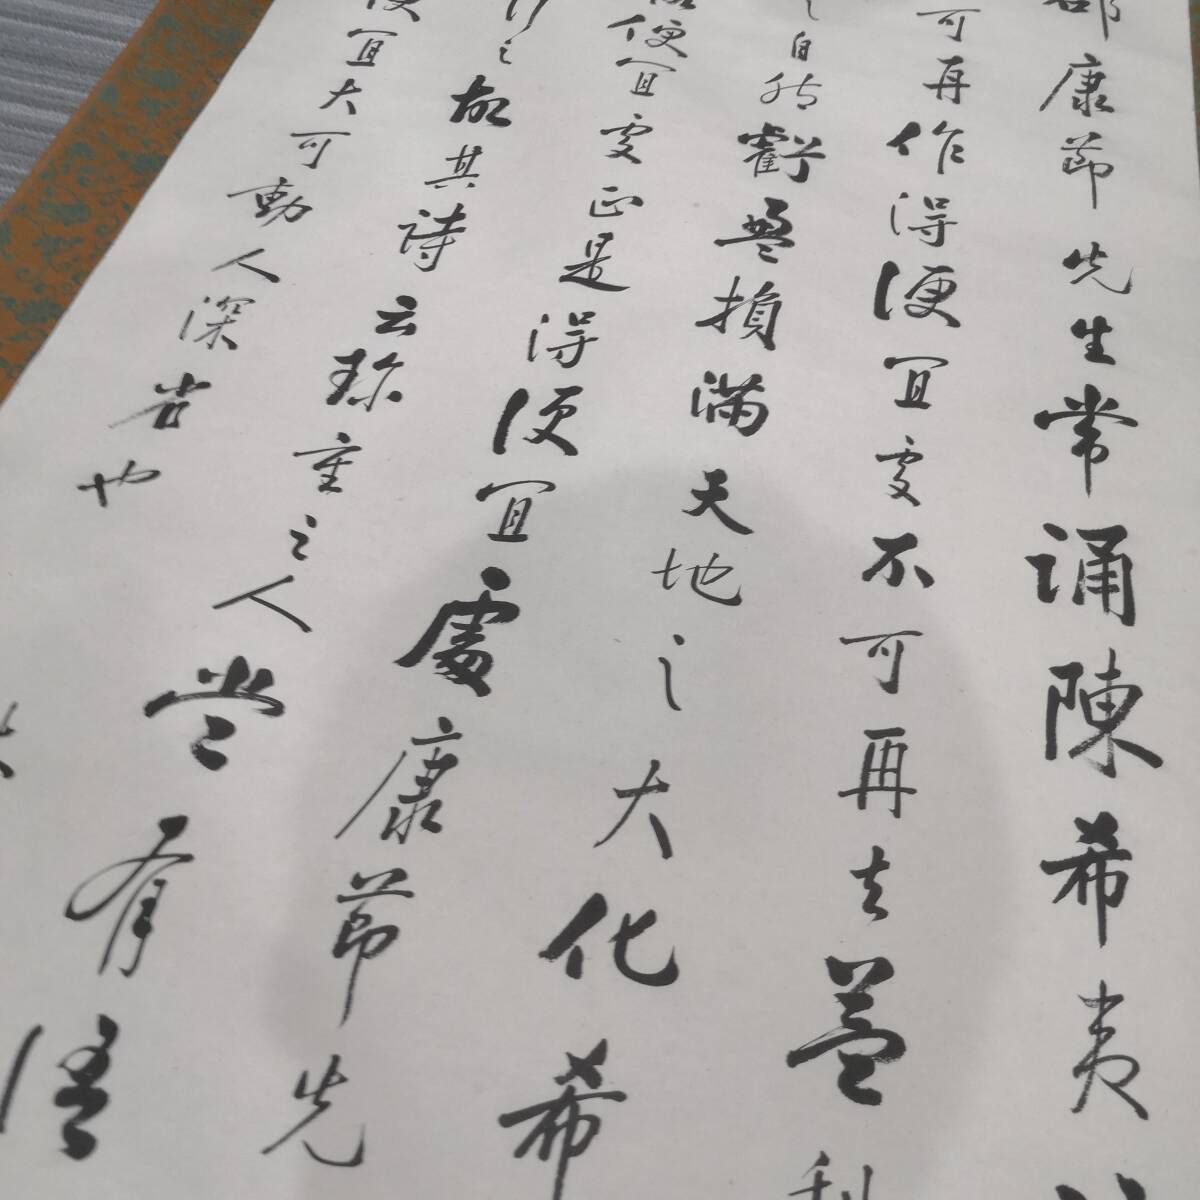 邵康節先生常誦陳希夷
可再作得便宜處不可再去蓋利
之自然虧盈損滿天地之大化希
便宜處正是得便宜處康節先
之故其詩云珍重之人嘗有語
便宜大可動人深省也